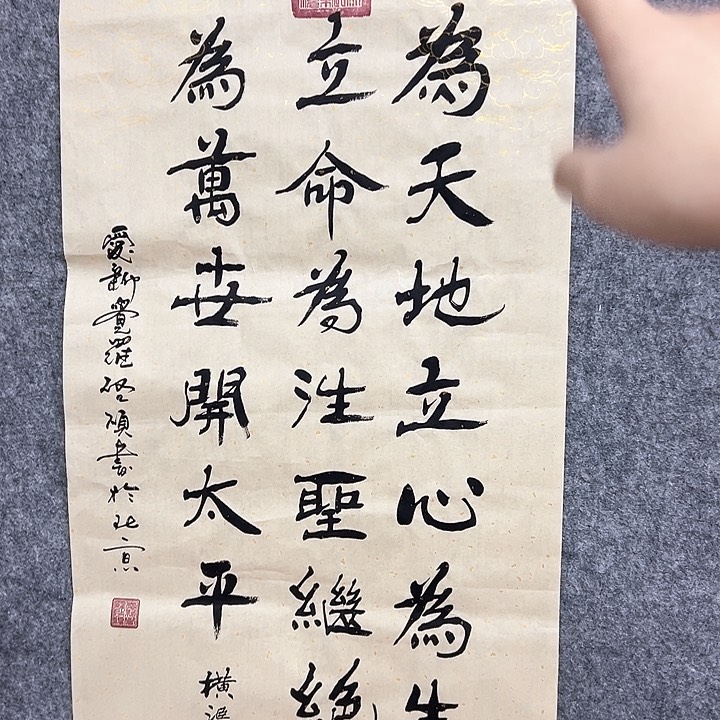 為天地立心為生
立命為往聖繼絕
為萬世開太平
橫渠
愛新覺羅启碩書於北京